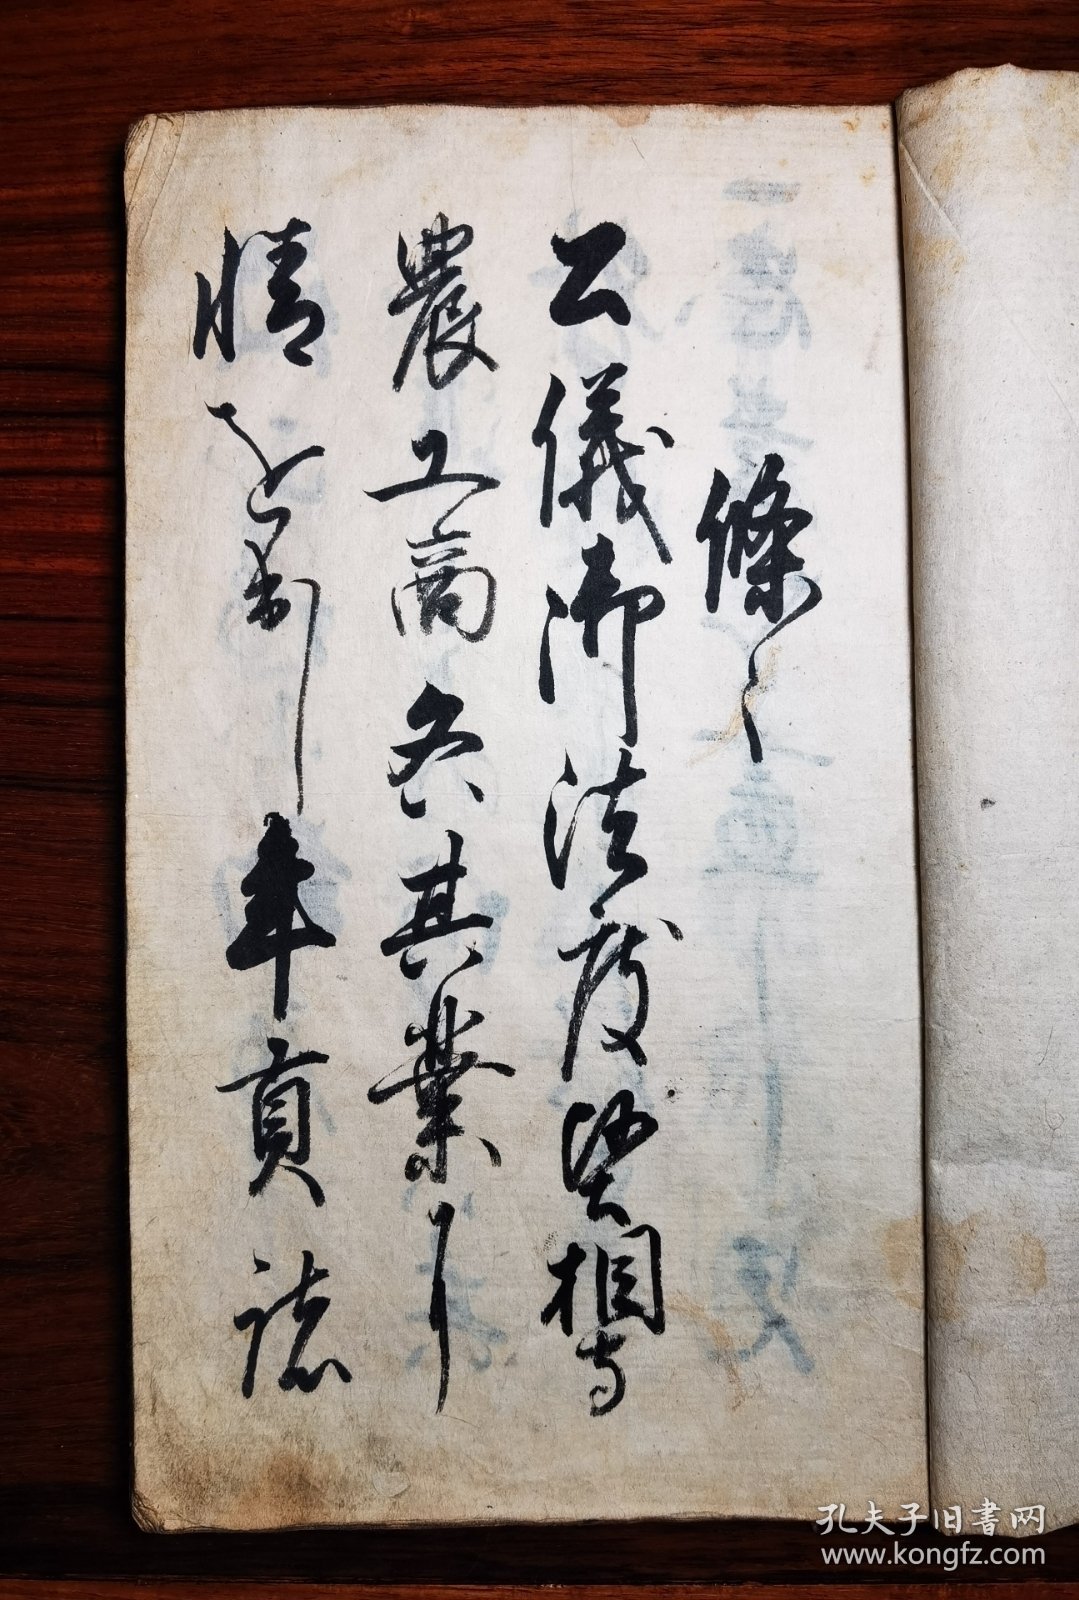 條々
公儀御法度堅相守
農工商各其業ニ
精を出し年貢諸
孔夫子旧書网
www.kongfz.com